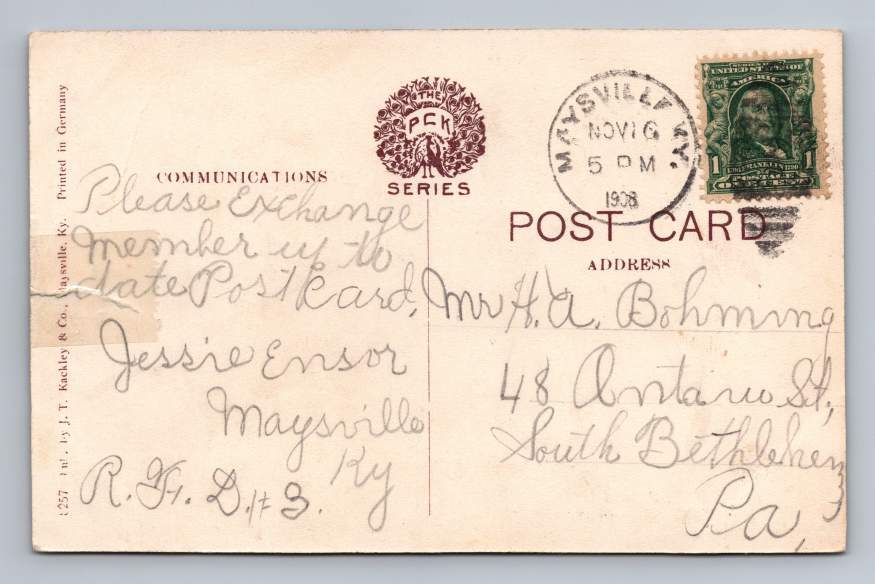 COMMUNICATIONS
THE
PCK
SERIES
MAYSVILLE KY.
NOV 16
5 PM
1908
UNITED STATES OF
AMERICA
1 FRANKLIN 1790 1
POSTAGE
ONE CENT
POST CARD
ADDRESS
Please Exchange
Member up to
date Post Card,
Jessie Ensor
Maysville
Ky
R. F. D. #3.
Mr H. A. Bohming
48 Ontario St,
South Bethlehem
Pa,
6257 Pub. by J. T. Kackley & Co., Maysville, Ky. Printed in Germany